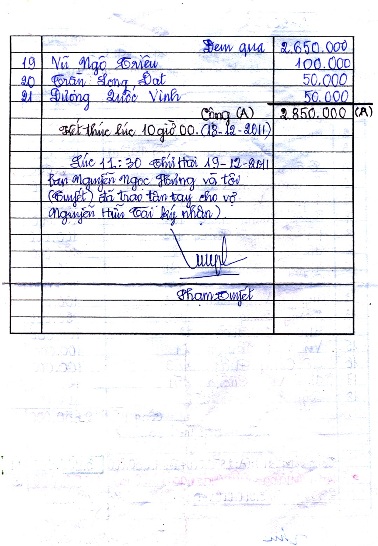 Đem qua 2.650.000
19 Vũ Ngô Triều 100.000
20 Trần Long Đạt 50.000
21 Dương Quốc Vinh 50.000
Cộng (A) 2.850.000 (A)
Kết thúc lúc 10 giờ 00. (18-12-2011)
Lúc 11:30 Thứ Hai 19-12-2011
bạn Nguyễn Ngọc Hùng và tôi
(Tuyết) đã trao tận tay cho vợ
Nguyễn Hữu Tài ký nhận)
Phạm Tuyết